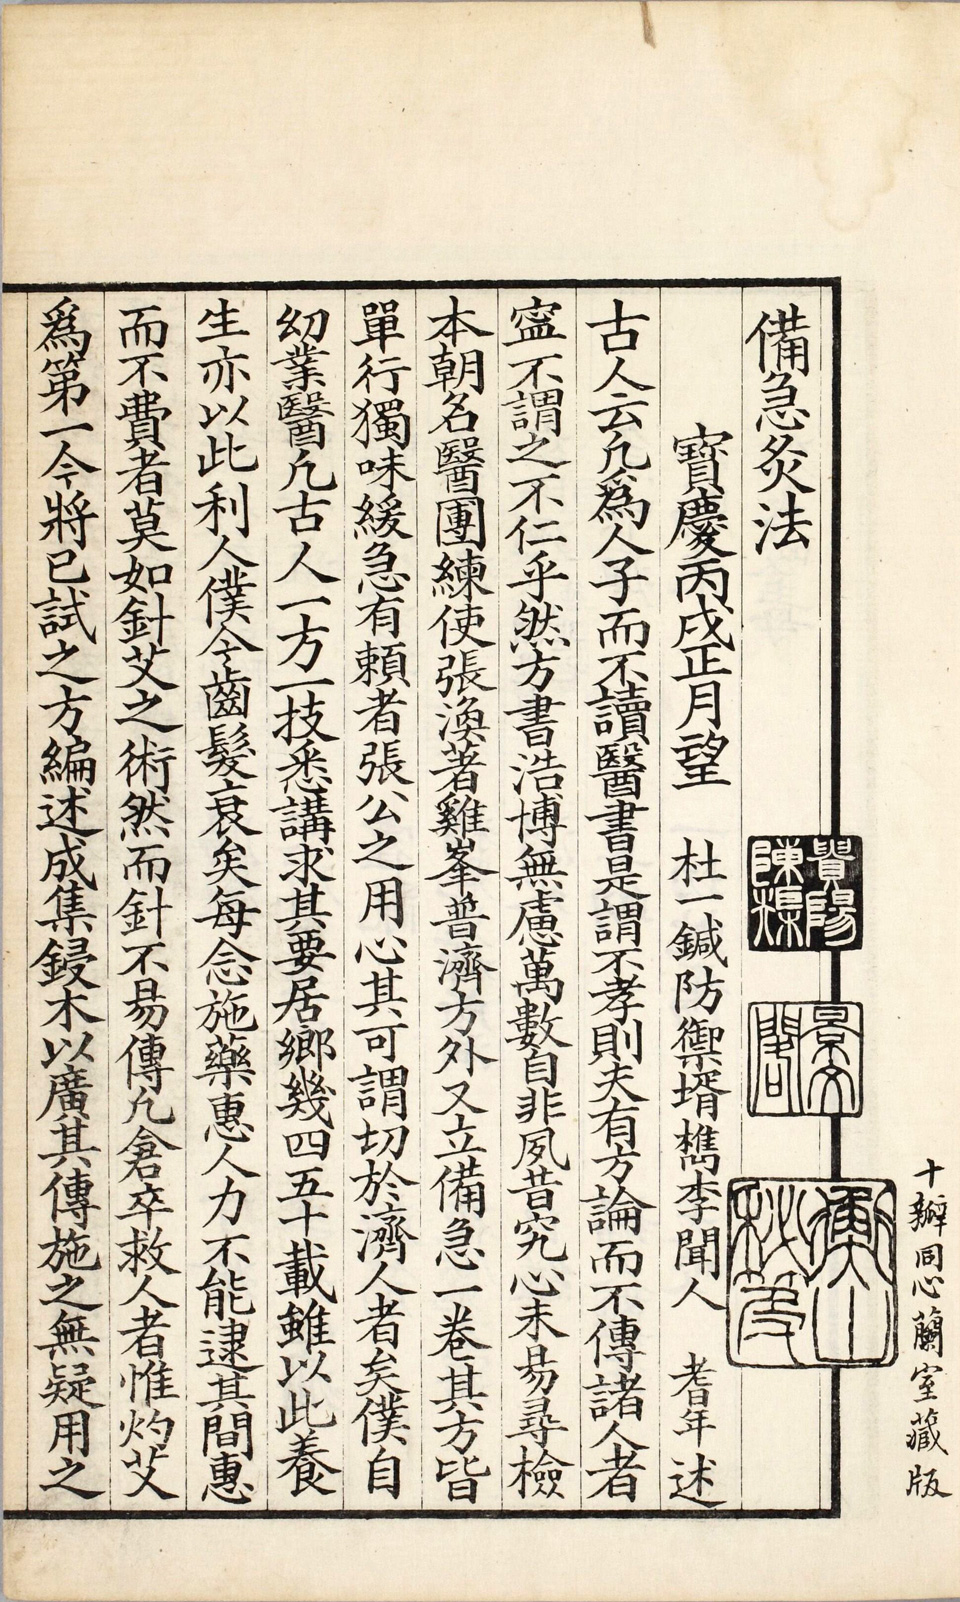 十瓣同心蘭室藏版
備急灸法
寶慶丙戌正月望　杜一鍼防禦壻檇李聞人　耆年　述
古人云凢爲人子而不讀醫書是謂不孝則夫有方論而不傳諸人者
寍不謂之不仁乎然方書浩博無慮萬數自非夙昔究心未易尋檢
本朝名醫團練使張渙著雞峯普濟方外又立備急一卷其方皆
單行獨味緩急有賴者張公之用心其可謂切於濟人者矣僕自
幼業醫凢古人一方一技悉講求其要居鄉幾四五十載雖以此養
生亦以此利人僕今齒髮衰矣每念施藥惠人力不能逮其間惠
而不費者莫如針艾之術然而針不易傳凢倉卒救人者惟灼艾
爲第一今將已試之方編述成集鋟木以廣其傳施之無疑用之
貴陽陳榘